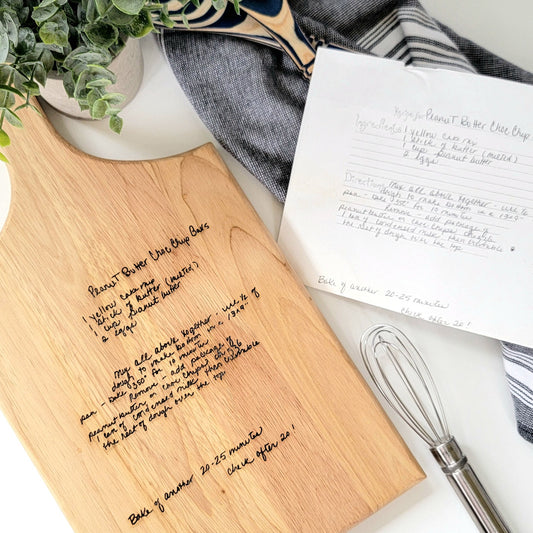 Peanut Butter Choc Chip Bars
1 yellow cake mix
1 stick of butter (melted)
1 cup peanut butter
2 eggs
Mix all above together - use ½ of
dough to make bottom in a 13x9"
pan - Bake 350° for 10 minutes
Remove - add package of
peanut butter or choc chips drizzle
1 can of condensed milk, then crumble
the rest of dough over the top
Bake of another 20-25 minutes
check after 20!
Peanut Butter Choc Chip
Ingredients 1 yellow cake mix
1 stick of butter (melted)
1 cup peanut butter
2 eggs
Directions Mix all above together - use ½
dough to make bottom in a 13x9"
pan - Bake 350° for 10 minutes
Remove - add package of
peanut butter or choc chips, drizzle
1 can of condensed milk, then crumble
the rest of dough over the top
Bake of another 20-25 minutes
check after 20!